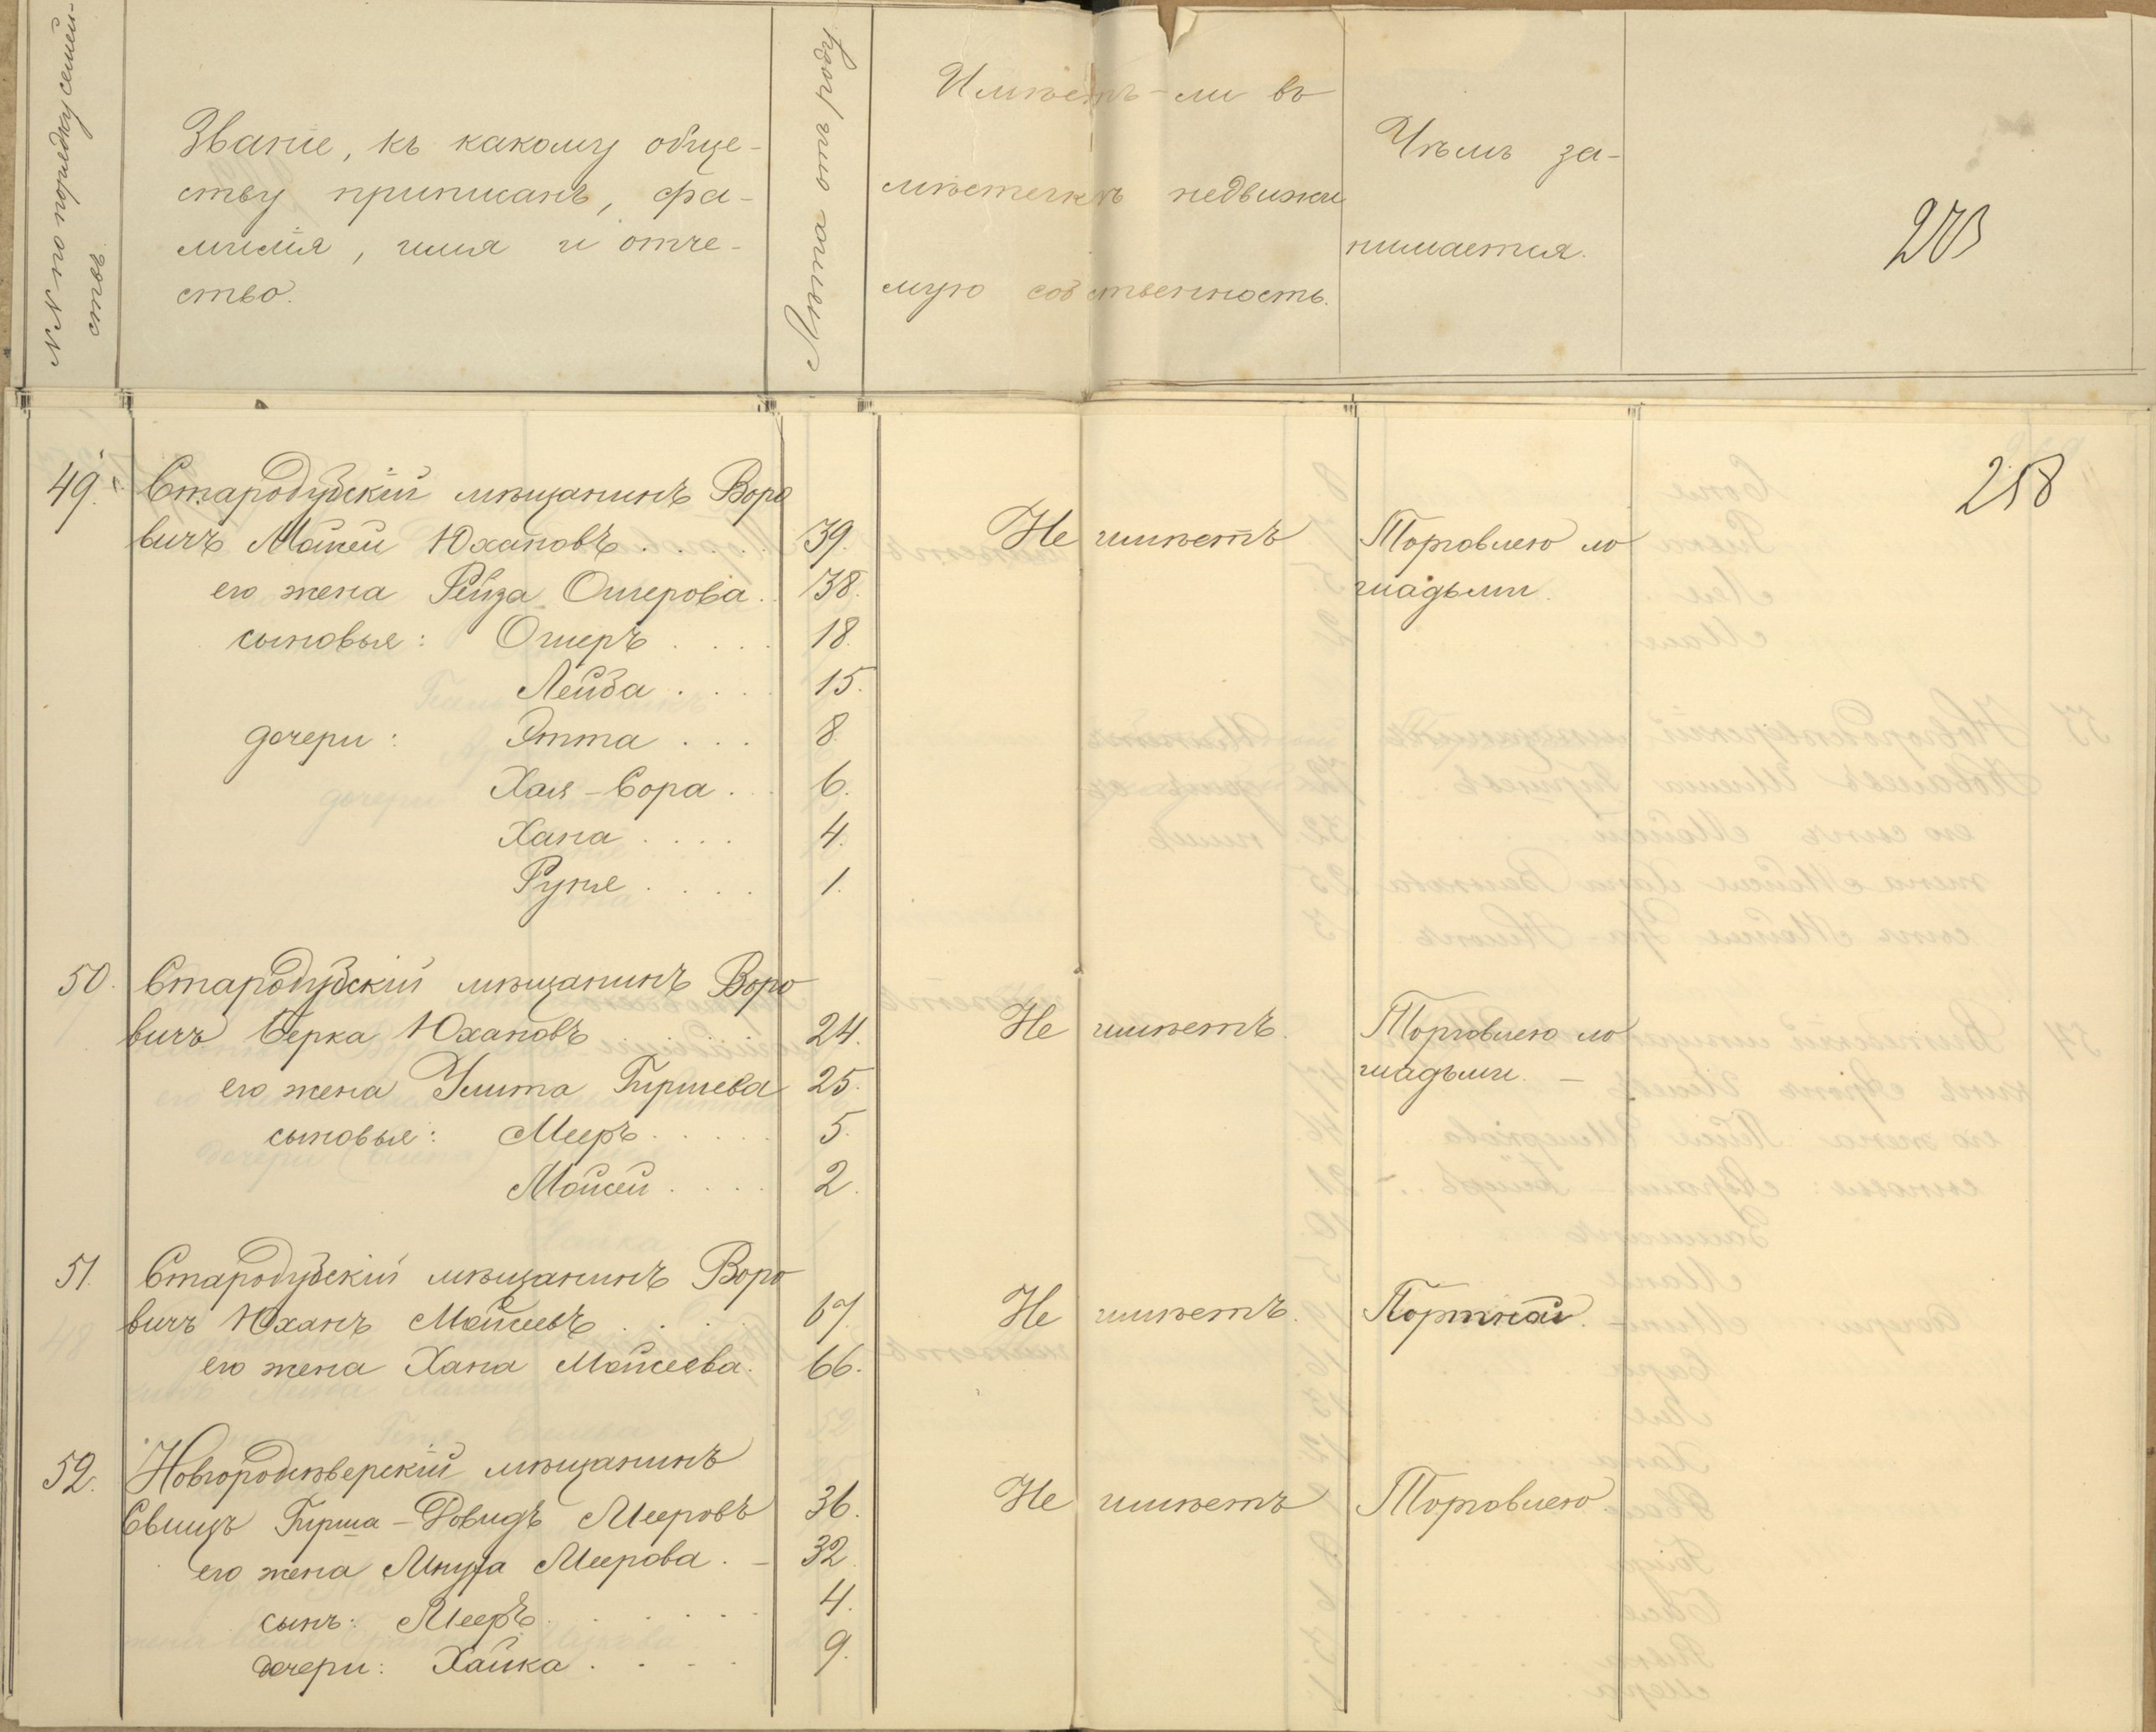 №№ по порядку семей-
ствъ.
Званіе, къ какому обще-
ству приписанъ, фа-
милія, имя и отче-
ство.
Лѣта отъ роду
Имѣетъ-ли въ
мѣстечкѣ недвижи
мую собственность.
Чѣмъ за-
нимается.
203
258
49. Стародубскій мѣщанинъ Воро
вичъ Мойсей Юхановъ . . . . . 39. Не имѣетъ Торговлею ло
его жена Рейза Ошерова. 38. шадьми.
сыновья: Ошеръ . . . . 18.
Лейба . . . 15.
дочери: Этта . . . 8.
Хая-Сора . . 6.
Хана . . . . 4.
Руня . . . . 1.
50. Стародубскій мѣщанинъ Воро
вичъ Берка Юхановъ . . . . . 24. Не имѣетъ. Торговлею ло
его жена Улита Гиршева 25. шадьми. —
сыновья: Мееръ . . . . . 5.
Мойсей . . . . 2.
51. Стародубскій мѣщанинъ Воро
вичъ Юханъ Мойсеевъ . . . . 67. Не имѣетъ. Портной.
его жена Хана Мойсеева. 66.
52. Новгородсѣверскій мѣщанинъ
Гирша-Довидъ Мееровъ 36. Не имѣетъ Торговлею
его жена Меерова. — 32.
сынъ: Мееръ . . . . . . 4.
дочери: Хайка . . . . 9.